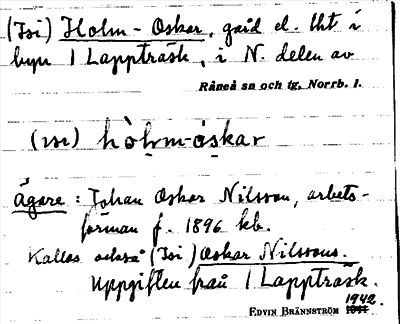 (Isi) Holm-Oskar, gård el. tht i
byn 1 Lappträsk, i N. delen av
Råneå sn och tg, Norrb. l.
(ɪsɪ) hòḷm-óskar
Ägare : Johan Oskar Nilsson, arbets-
förman f. 1896 kb.
Kallas också (Isi) Oskar Nilssons.
Uppgiften från 1 Lappträsk.
1942.
EDVIN BRÄNNSTRÖM 1941